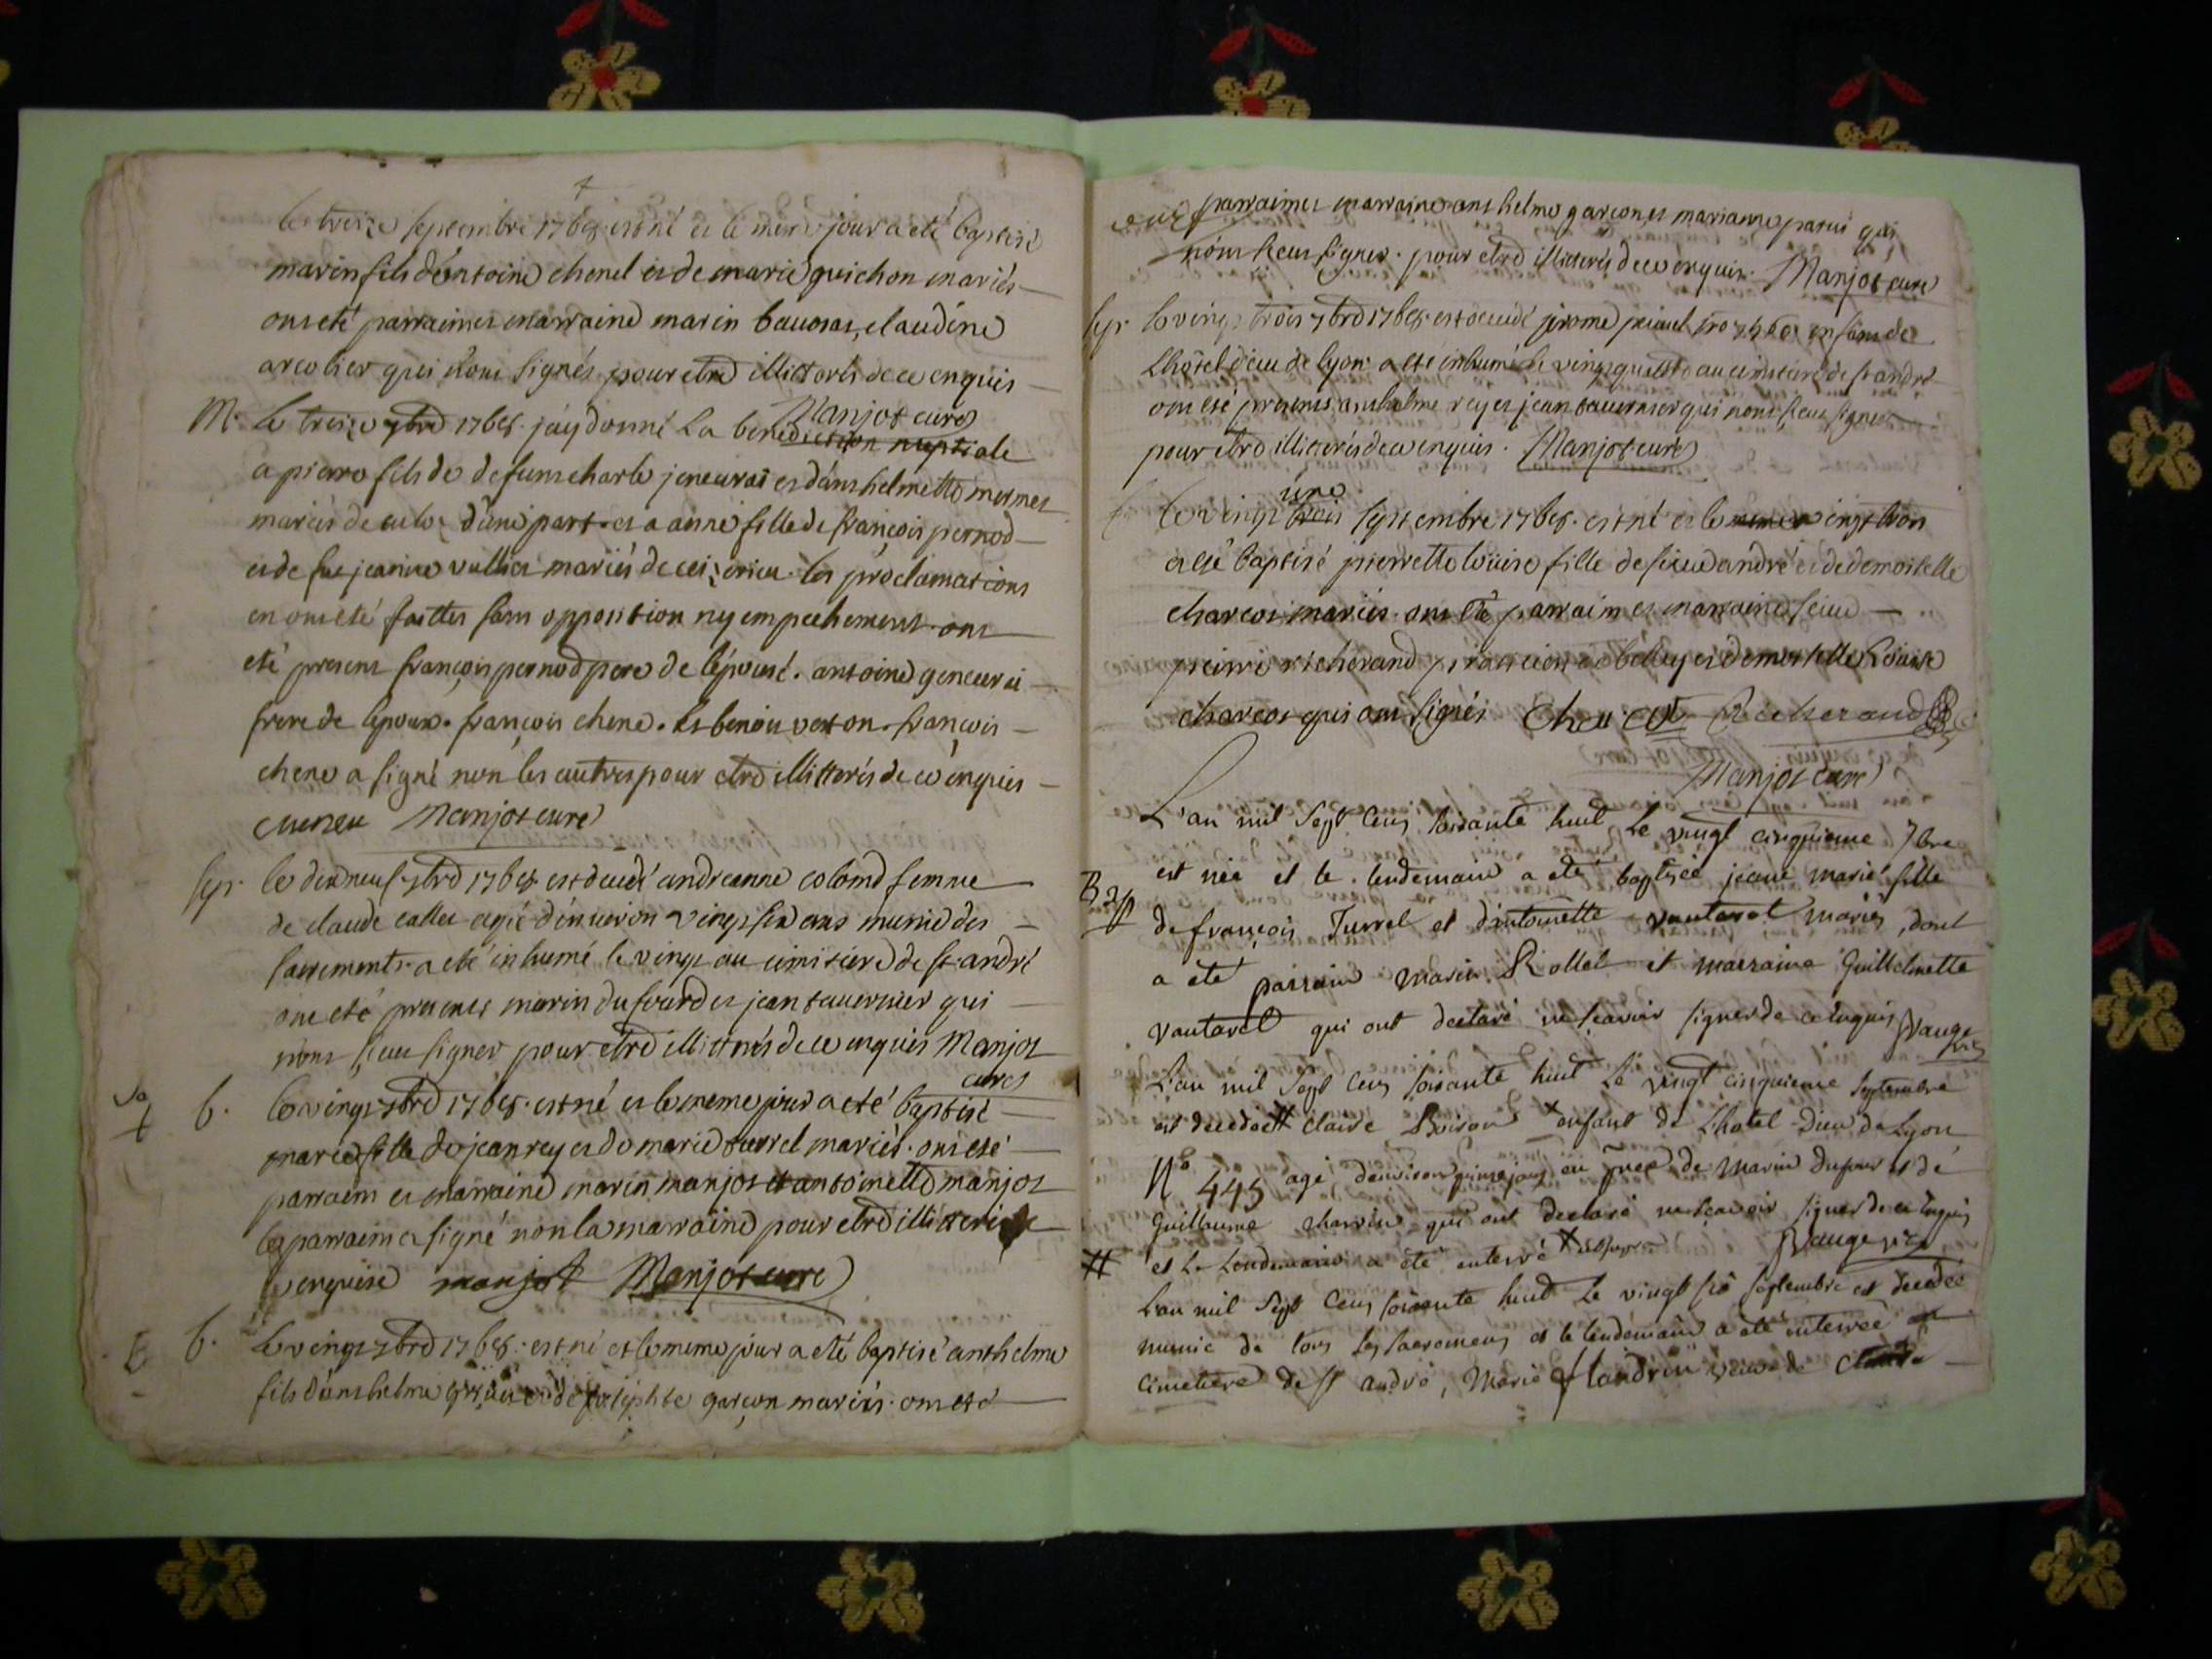 le treize septembre 1768 est né et le meme jour a eté baptisé
marin fils d'antoine chenel et de marie guichon mariés
ont eté parrain et marraine marin claudine
arcolier qui n'ont signés pour etre illitterés de ce enquis
Manjot curé
M. le treize 7bre 1768 j'ay donné la benediction nuptiale
a pierre fils de defunt charle jeneurai et d'anthelmette mermet
mariés de d'une part et a anne fille de françois pernod
et de feu jeanne vullier mariés de les proclamations
en ont eté faittes sans opposition ny empechement ont
eté present françois pernod pere de l'épouse. antoine geneurai
frere de lepoux. françois chene. et benoit verton. françois
chene a signé non les autres pour etre illitterés de ce enquis
Manjot curé
sep. le dixneuf 7bre 1768 est decedé andreanne colomd femme
de claude callet agé d'environ vingt six ans munie des
sacrements. a eté inhumé le vingt au cimitiere de st. andré
ont eté presents marin dufour et jean tauernier qui
n'ont sceu signer pour etre illitterés de ce enquis Manjot
curé
b. le vingt 7bre 1768. est né et le meme jour a eté baptisé
marie fille de jean rey et de marie turrel mariés. ont eté
parraim et marraine marin manjot et antoinette manjot
le parraim a signé non la marraine pour etre illitterée de
ce enquise manjot Manjot curé
b. le vingt 7bre 1768. est né et le meme jour a eté baptisé anthelme
fils d'anthelme et de garçon mariés. ont eté
parraim et marraine anthelme garçon et marianne parui qui
n'ont sceu signer. pour etre illitterés de ce enquis. Manjot curé
sep. le vingt trois 7bre 1768. est decedé jerome enfant de
l'hôtel dieu de lyon a eté inhumé le vingt quatre au cimitiere de st andré
ont eté presents anthelme rey et jean tauernier qui n'ont sceu signer
pour etre illitterés de ce enquis. Manjot curé
une
le vingt trois septembre 1768. est né et le vingt trois
a eté baptisé pierrette louise fille de sieur andré et de demoiselle
charcot mariés. ont eté parraim et marraine sieur
pierre richerand praticien a belley et demoiselle Louise
charcot qui ont signés Charcot Richerand
Manjot curé
L'an mil sept cens soixante huit le vingt cinquieme 7bre
est née et le lendemain a eté baptisée jeane marie fille
de françois Turrel et d'antoinette vautaret mariés, dont
a eté parrain marin Rollet et marraine Guillelmette
vautaret qui ont declaré ne scavoir signer de ce enquis
L'an mil sept cens soixante huit le vingt cinquieme septembre
est decedée # claire enfant de l'hotel Dieu de Lyon
No 445 agé d'environ quinze jours en pres de marin dufour et de
Guillaume marin qui ont declaré ne scavoir signer de ce enquis
# et le lendemain a eté enterré
L'an mil sept cens soixante huit le vingt six septembre est decedée
munie de tous les sacremens et le lendemain a eté enterrée au
cimetiere de st andré, marie flandrin veuve de claude